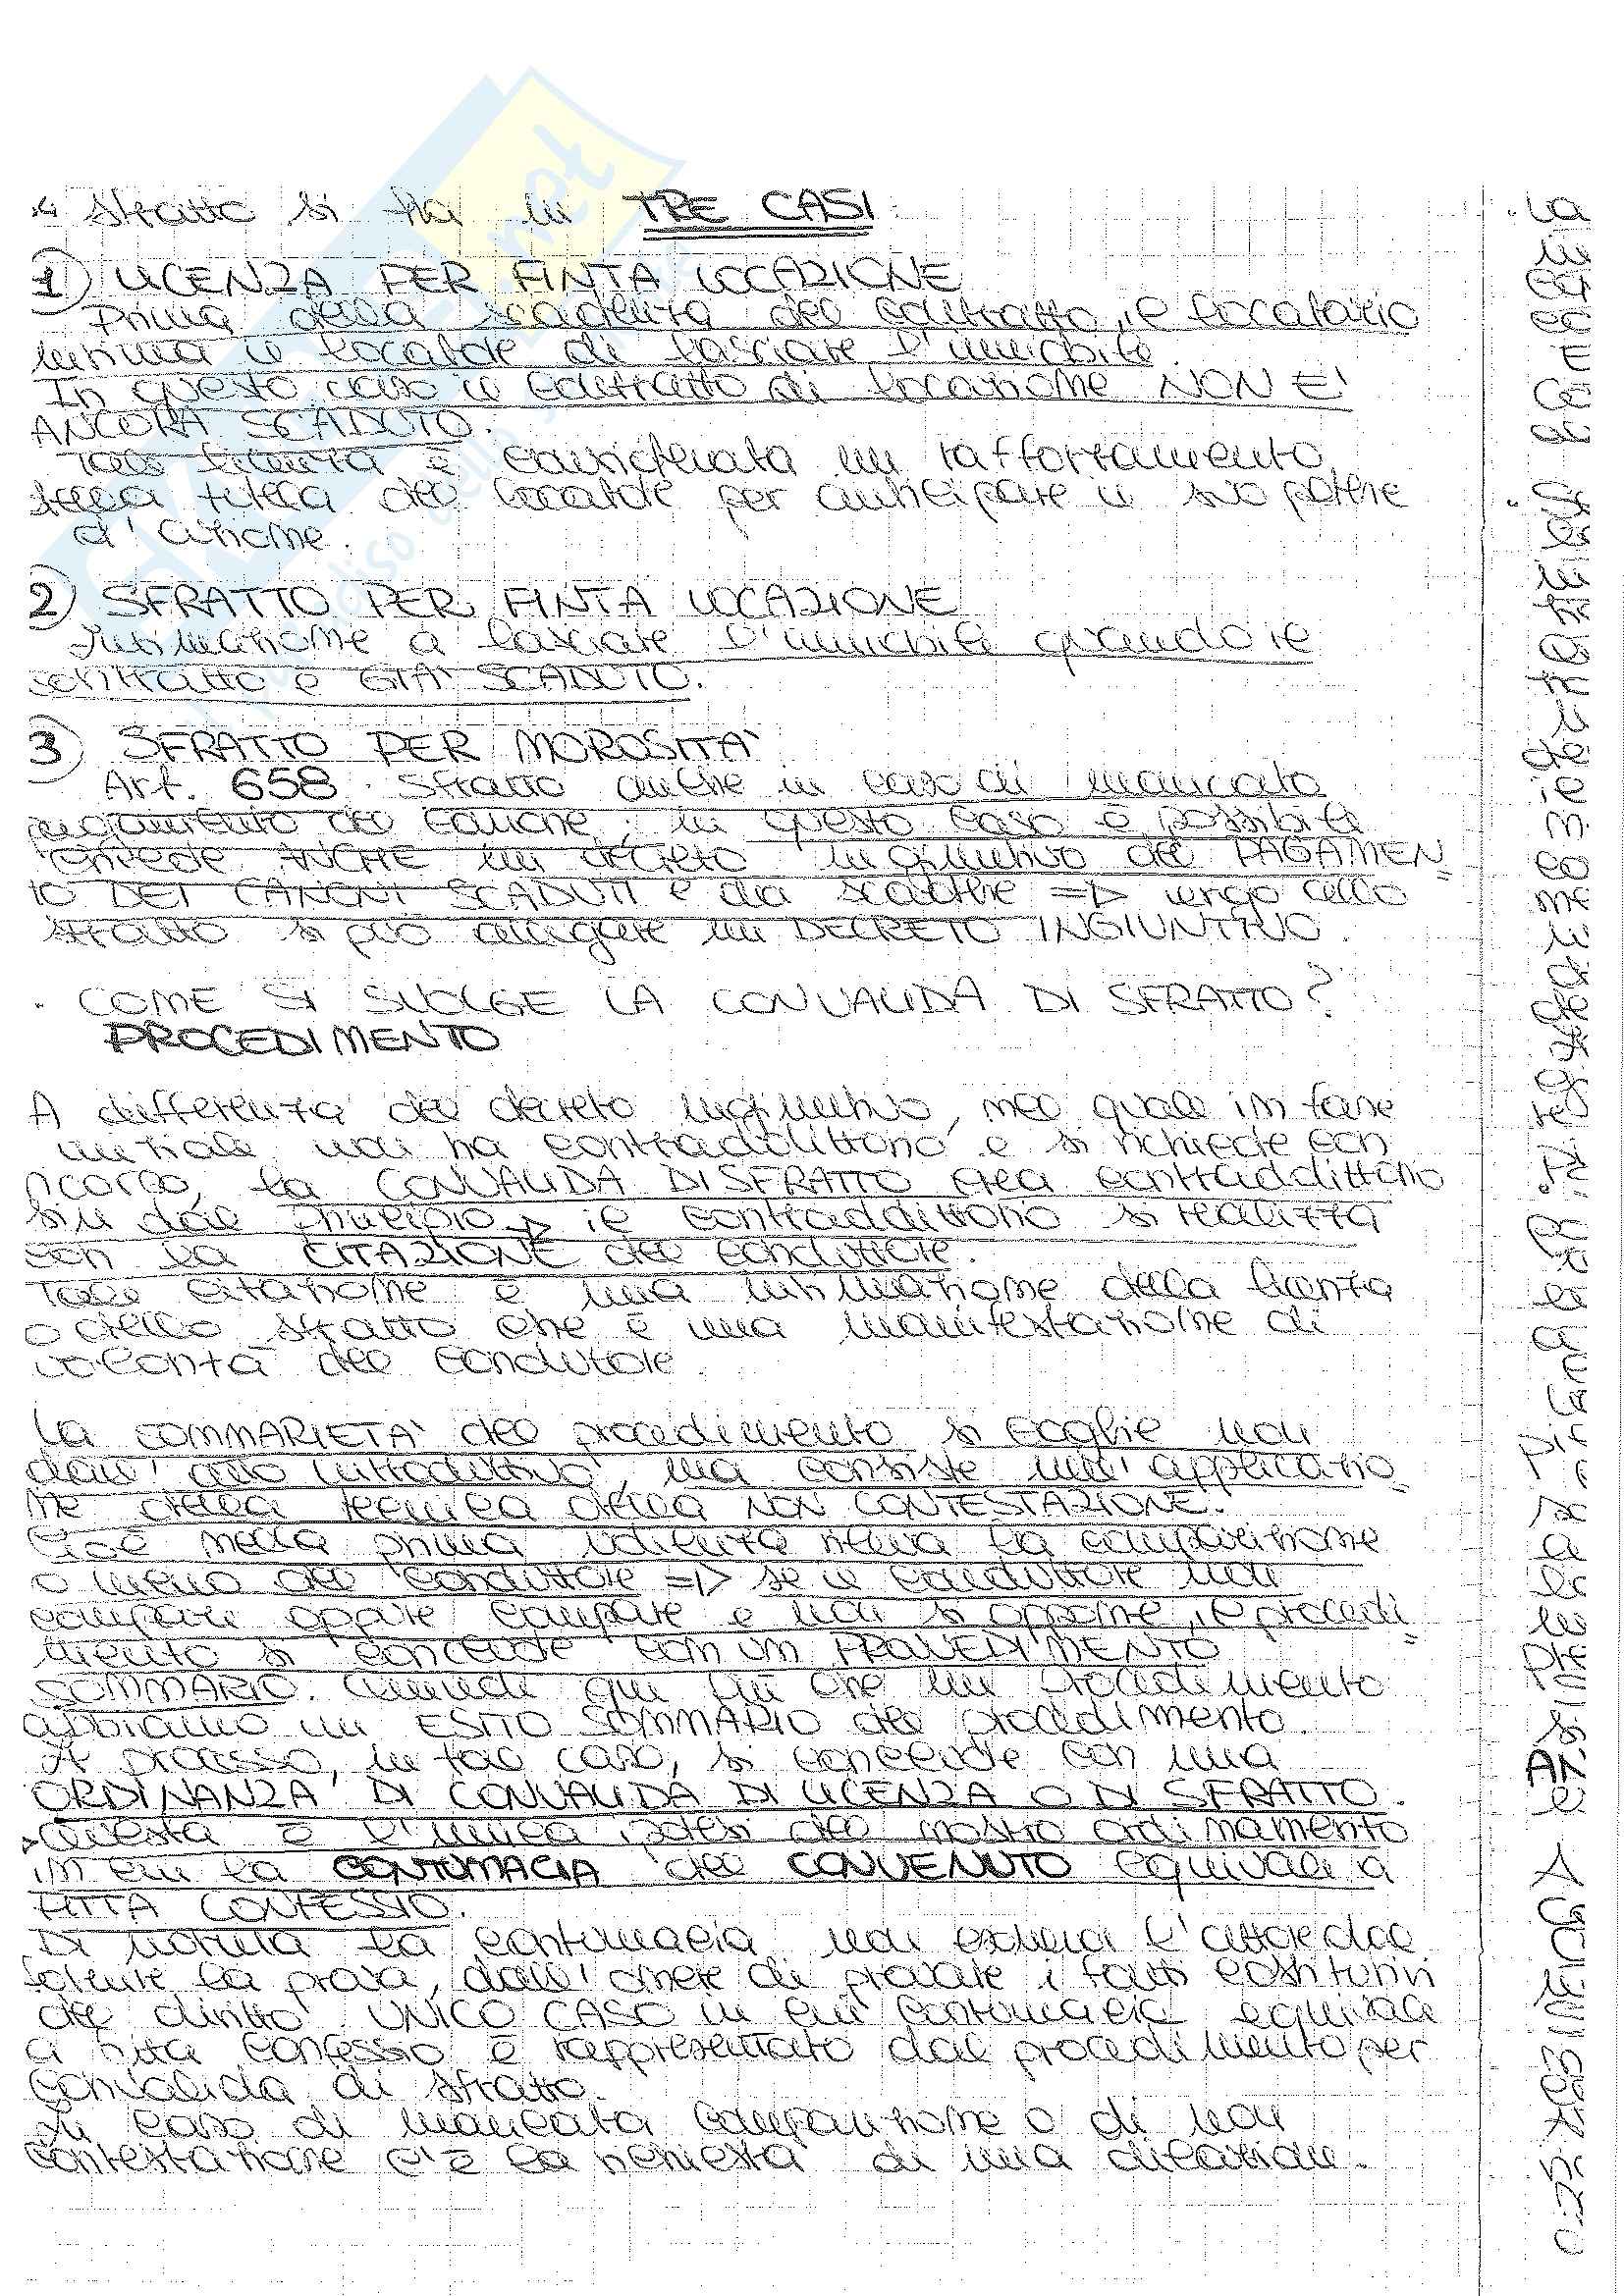 Lo sfratto si ha in TRE CASI:
1) LICENZA PER FINITA LOCAZIONE
Prima della scadenza del contratto, il locatario
intima il locatore di lasciare l'immobile.
In questo caso il contratto di locazione NON E'
ANCORA SCADUTO.
Tale licenza è considerata un rafforzamento
della tutela del locatore per anticipare il suo potere
d'azione.
2) SFRATTO PER FINITA LOCAZIONE
Intimazione a lasciare l'immobile quando il
contratto è GIA' SCADUTO.
3) SFRATTO PER MOROSITA'
Art. 658. Sfratto anche in caso di mancato
pagamento del canone; in questo caso è possibile
chiedere ANCHE un decreto ingiuntivo del PAGAMEN=
TO DEI CANONI SCADUTI e da scadere => insieme allo
sfratto si può allegare un DECRETO INGIUNTIVO.
. COME SI SVOLGE LA CONVALIDA DI SFRATTO?
PROCEDIMENTO
A differenza del decreto ingiuntivo, nel quale in fase
iniziale non ha contraddittorio e si richiede con
ricorso, la CONVALIDA DI SFRATTO crea contraddittorio
sin dal principio -> il contraddittorio si realizza
con la CITAZIONE del conduttore.
Tale citazione è una intimazione della licenza
o dello sfratto che è una manifestazione di
volontà del conduttore.
La SOMMARIETA' del procedimento si coglie non
dall'atto introduttivo, ma consiste nell'applicazio=
ne della tecnica della NON CONTESTAZIONE.
Cioè nella prima udienza rileva la comparizione
o meno del conduttore => se il conduttore non
compare oppure compare e non si oppone, il procedi=
mento si conclude con un PROVVEDIMENTO
SOMMARIO. Quindi qui più che un procedimento
abbiamo un ESITO SOMMARIO del procedimento.
Il processo, in tal caso, si conclude con una
ORDINANZA DI CONVALIDA DI LICENZA O DI SFRATTO.
Questa è l'unica ipotesi del nostro ordinamento
in cui la CONTUMACIA del CONVENUTO equivale a
FITTA CONFESSIO.
Di norma la contumacia non esclude l'attore dal
fornire la prova, dall'onere di provare i fatti costitutivi
del diritto. UNICO CASO in cui contumacia equivale
a ficta confessio è rappresentato dal procedimento per
convalida di sfratto.
In caso di mancata comparizione o di non
contestazione c'è la richiesta di una